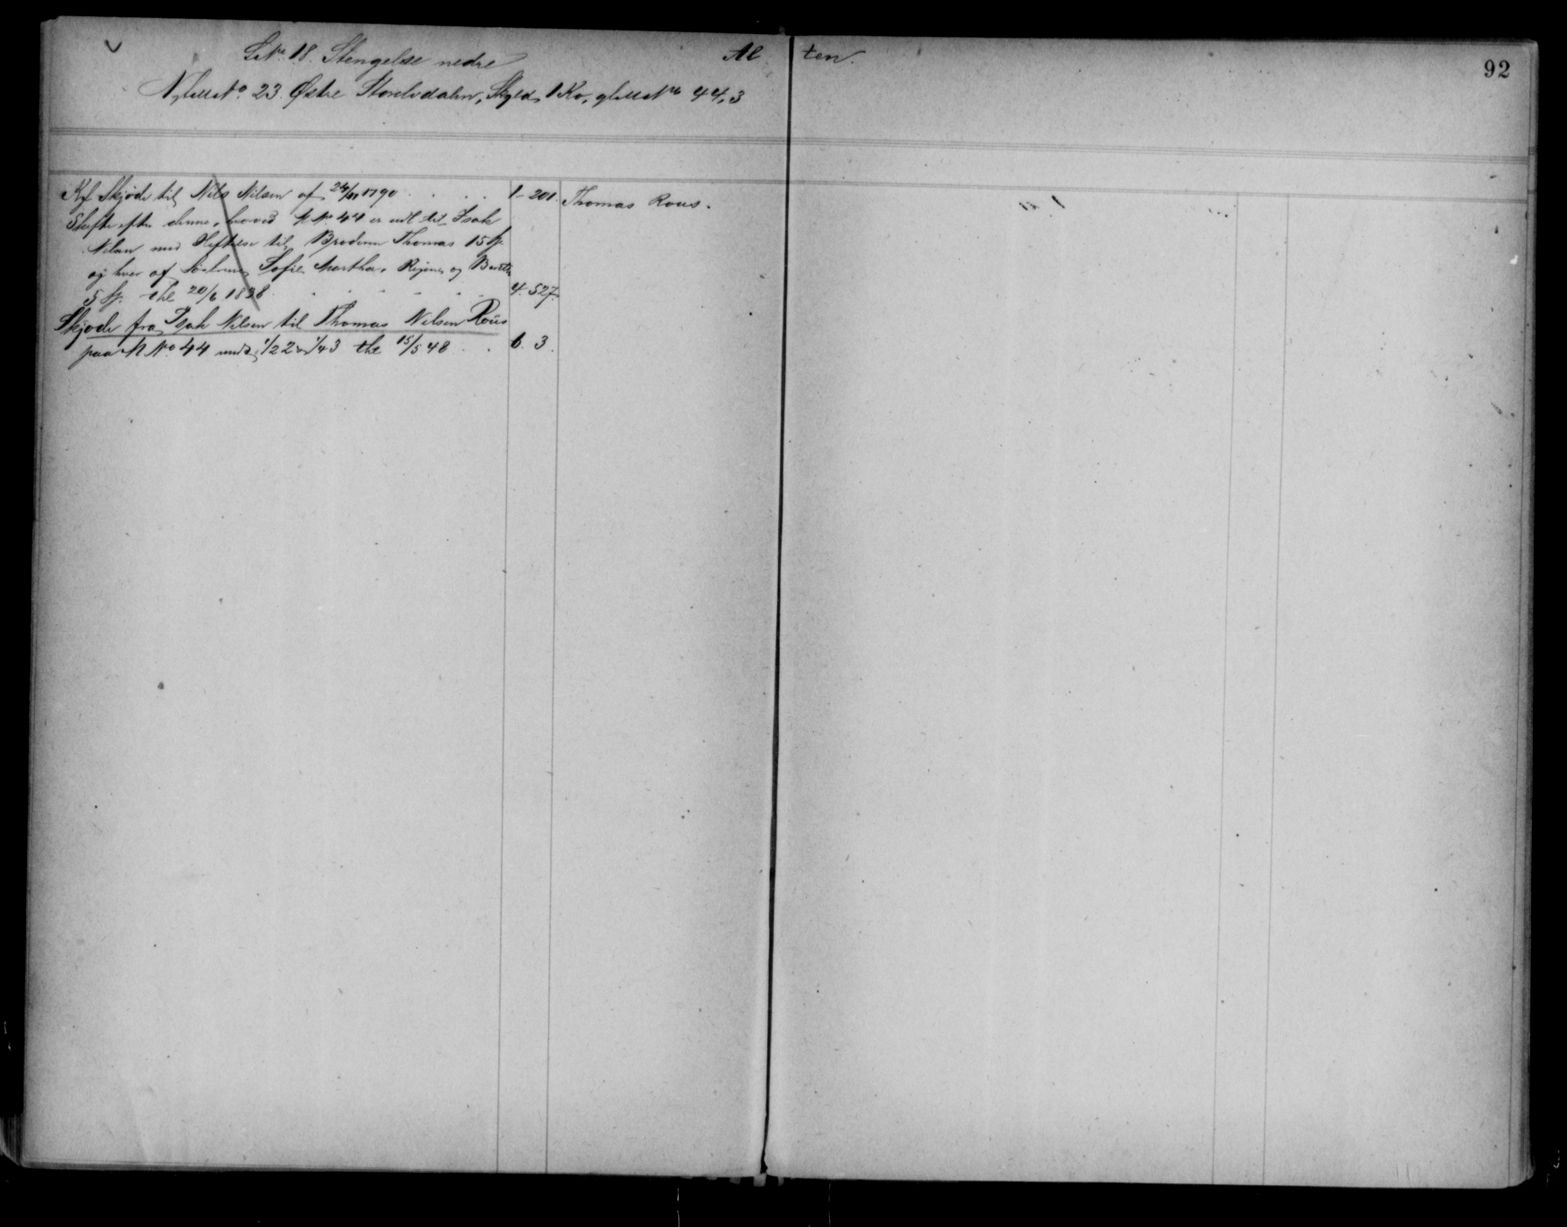 LNo 18. Stengelse nedre Al ten.
92
NylbNo. 23 Østre Storelvdalen, Skyld, 1 Ko, gl. No 44,3
Kgl Skjøde til Nils Nilsen af 24/11 1790 . . . . 1 - 201. Thomas Rous.
Skifte efter denne, hvorved M No 44 er udl til Isak
Nilsen med Heftelse til Broderen Thomas 15 Sp.
og hver af Søstrene Sofie, Martha, Regine og
5 Sp. thl 20/6 1838 . . . . . . 4. 527.
Skjøde fra Isak Nilsen til Thomas Nilsen Roüs
paa M No 44 1/2 2 43 thl 15/5 48 . . 6. 3.